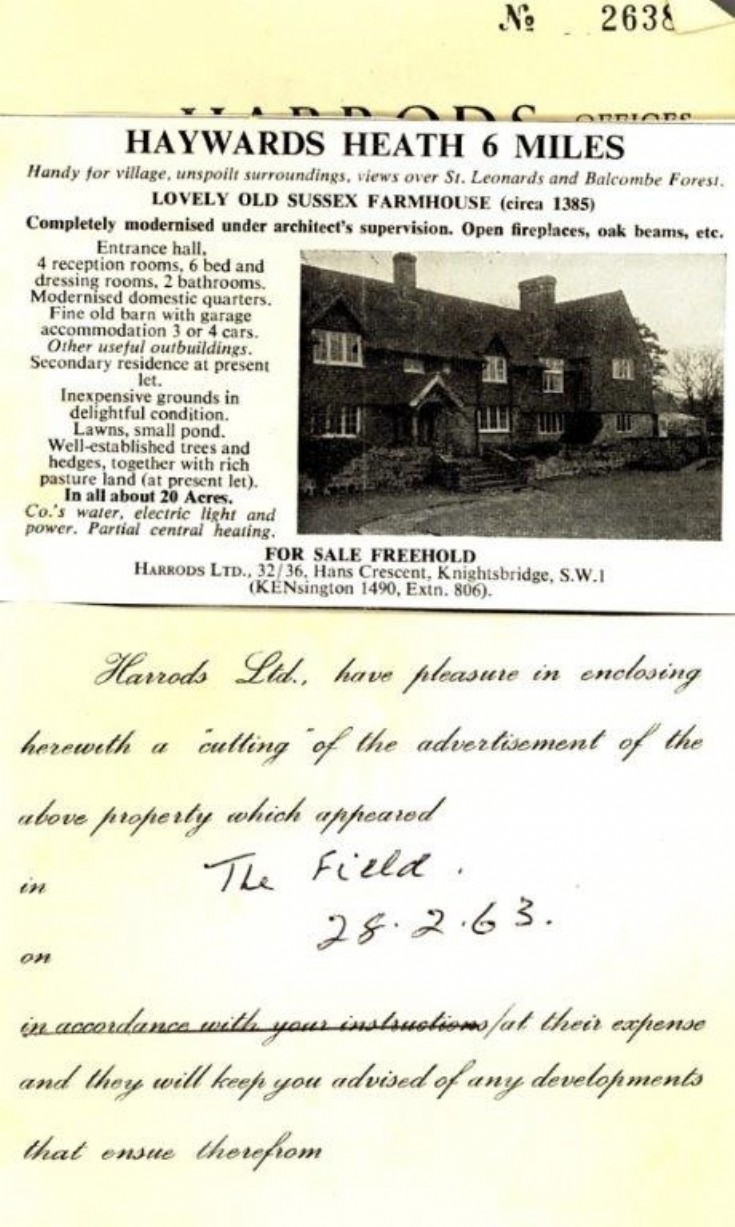 № 2638
HARRODS OFFICES
HAYWARDS HEATH 6 MILES
Handy for village, unspoilt surroundings, views over St. Leonards and Balcombe Forest.
LOVELY OLD SUSSEX FARMHOUSE (circa 1385)
Completely modernised under architect's supervision. Open fireplaces, oak beams, etc.
Entrance hall,
4 reception rooms, 6 bed and
dressing rooms, 2 bathrooms.
Modernised domestic quarters.
Fine old barn with garage
accommodation 3 or 4 cars.
Other useful outbuildings.
Secondary residence at present
let.
Inexpensive grounds in
delightful condition.
Lawns, small pond.
Well-established trees and
hedges, together with rich
pasture land (at present let).
In all about 20 Acres.
Co.'s water, electric light and
power. Partial central heating.
FOR SALE FREEHOLD
HARRODS LTD., 32/36, Hans Crescent, Knightsbridge, S.W.1
(KENsington 1490, Extn. 806).
Harrods Ltd., have pleasure in enclosing
herewith a "cutting" of the advertisement of the
above property which appeared
in The Field.
on 28.2.63.
in accordance with your instructions/at their expense
and they will keep you advised of any developments
that ensue therefrom